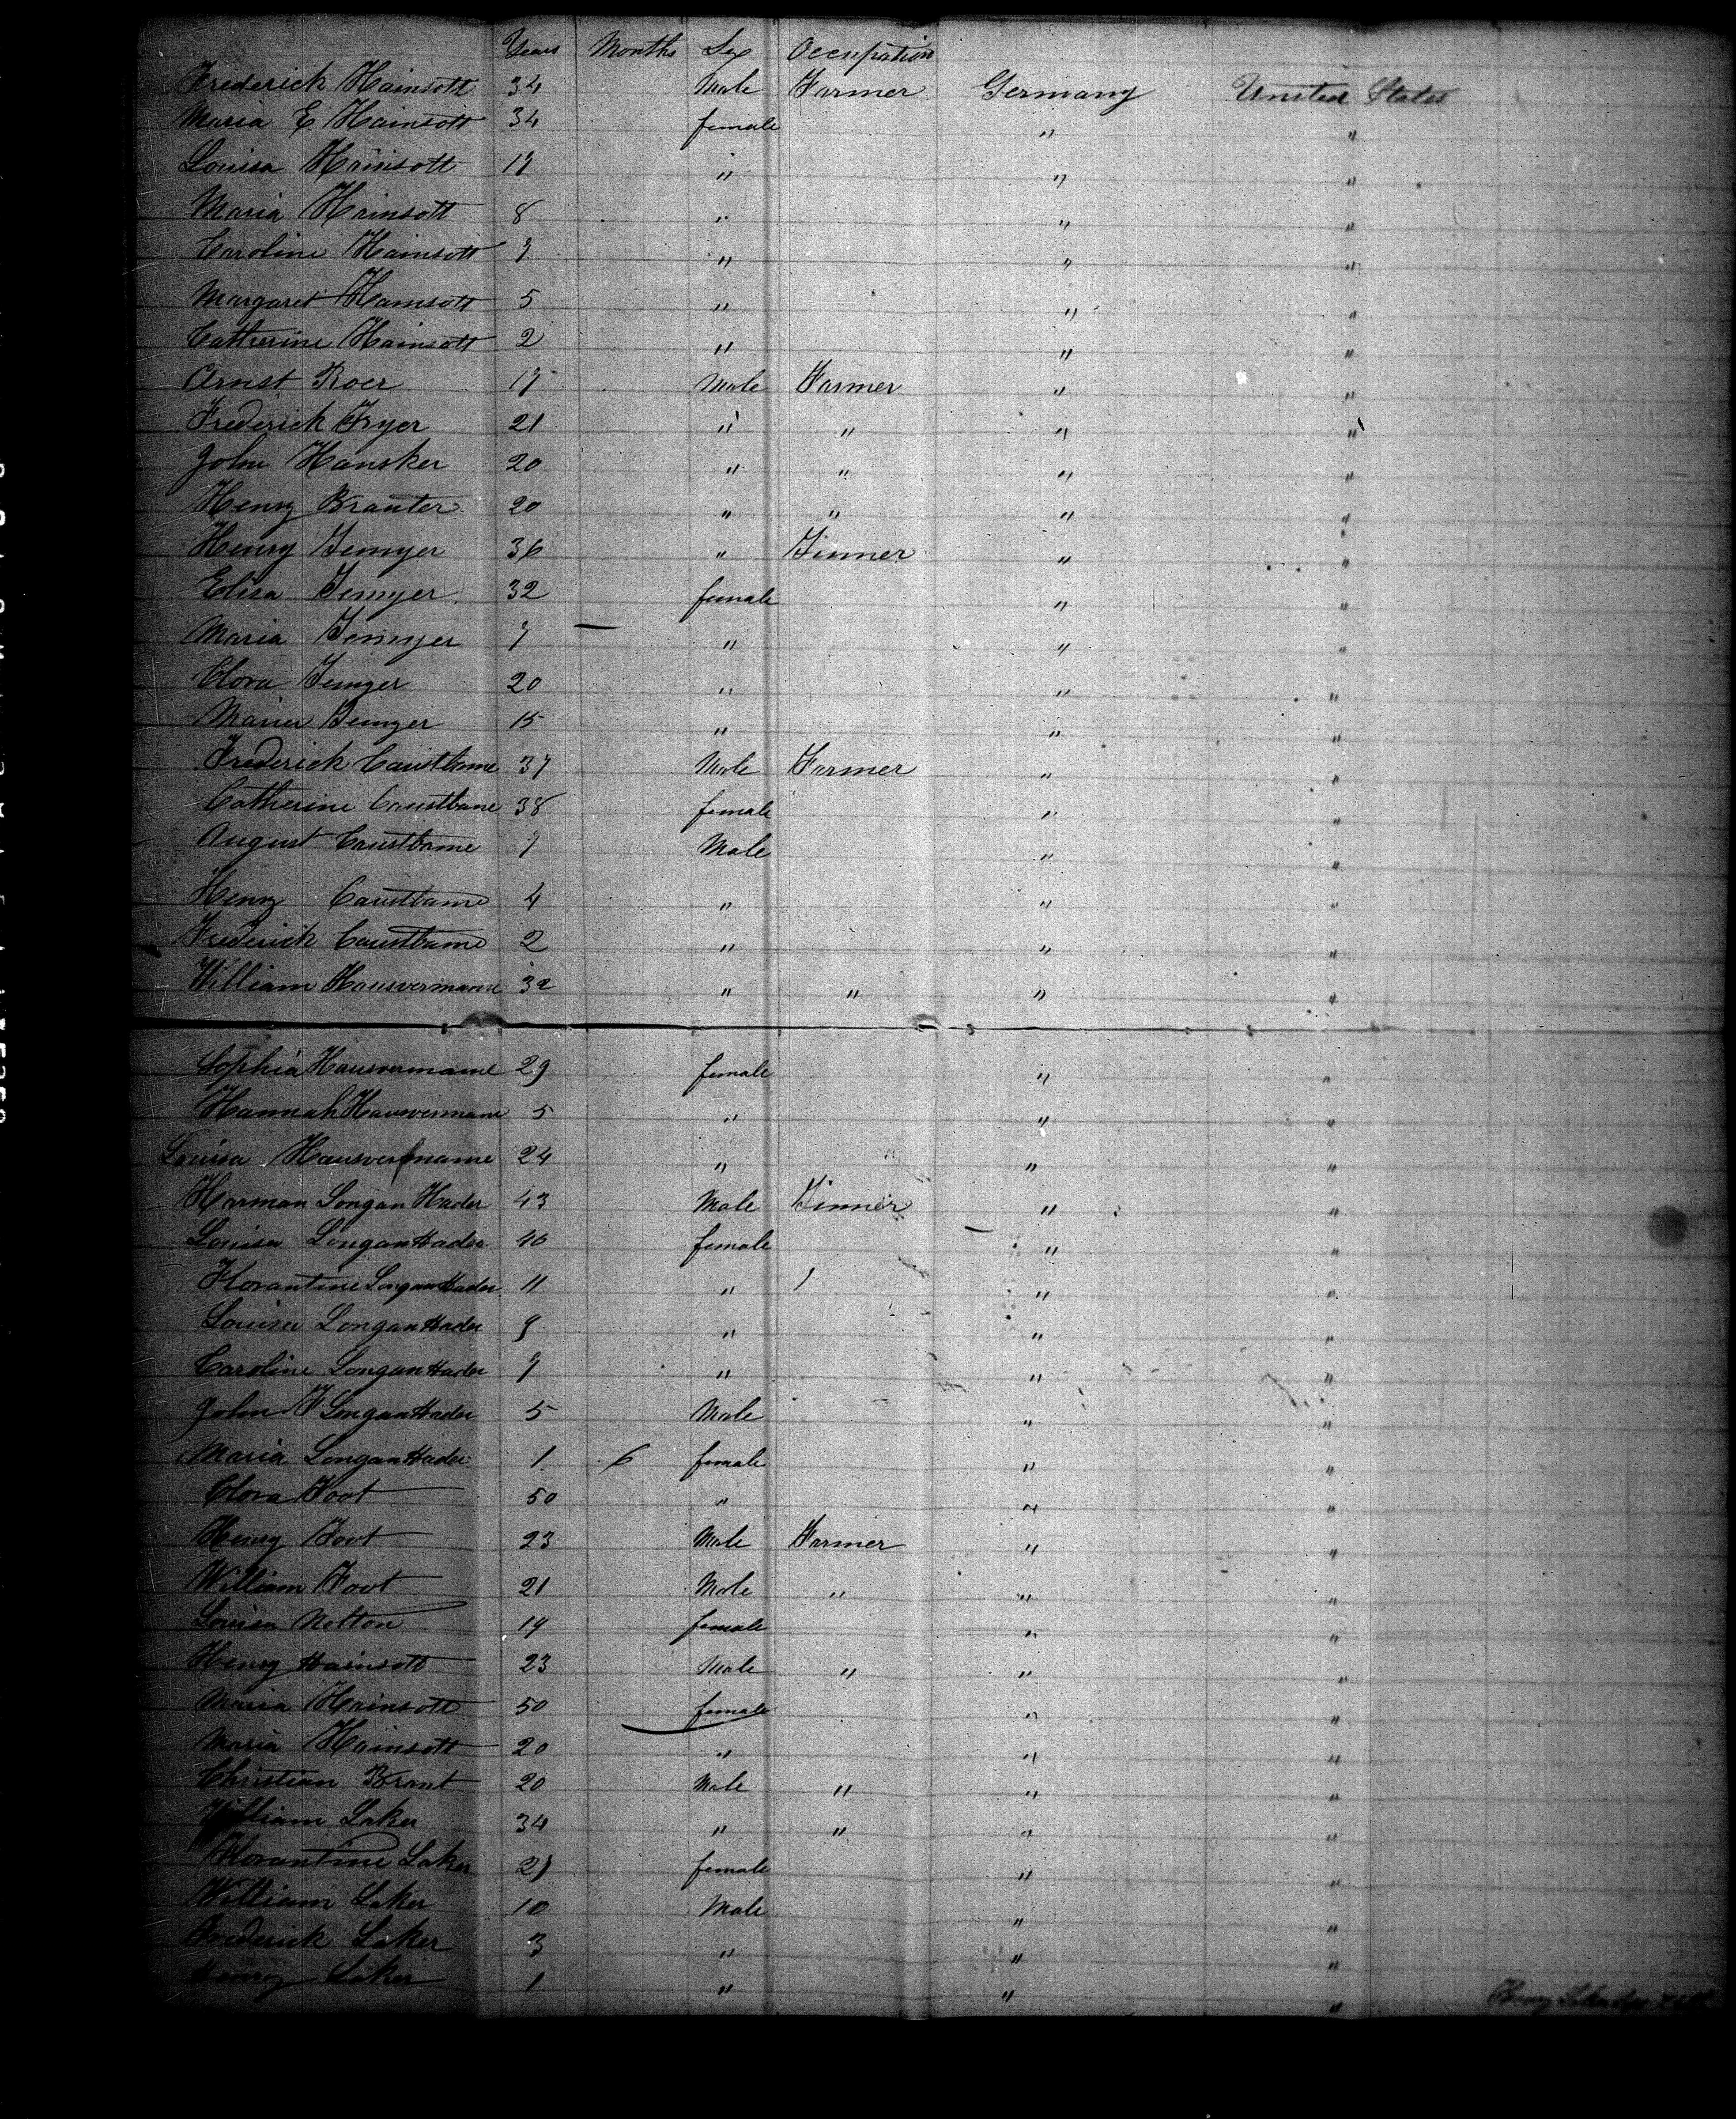 Years Months Sex Occupation
Frederick Hainsott 34 Male Farmer Germany United States
Maria E Hainsott 34 female " "
Louisa Hainsott 17 " " "
Maria Hainsott 8 " " "
Caroline Hainsott 7 " " "
Margaret Hainsott 5 " " "
Catherine Hainsott 2 " " "
Arnst Boer 17 Male Farmer " "
Frederick Fryer 21 " " " "
John Hansker 20 " " " "
Henry Branter 20 " " " "
Henry 36 " Tinner " "
Eliza 32 female " "
Maria 7 " " "
Clora 20 " " "
15 " " "
Frederick Caustbame 37 Male Farmer " "
Catherine Caustbame 38 female " "
August Caustbame 7 Male " "
Henry Caustbame 4 " " "
Frederick Caustbame 2 " " "
William Hausvermane 32 " " " "
Sophia Hausvermane 29 female " "
Hannah Hausvermane 5 " " "
Louisa Hausvermane 24 " " "
Harman Longan Hader 43 Male Tinner " "
Louisa Longan Hader 40 female " "
Florantine Longan Hader 11 " " "
Louisa Longan Hader 9 " " "
Caroline Longan Hader 7 " " "
John F Longan Hader 5 Male " "
Maria Longan Hader 1 6 female " "
Clora Foot 50 " " "
Henry Foot 23 Male Farmer " "
William Foot 21 Male " " "
Louisa Nolton 19 female " "
Henry Hainsott 23 Male " " "
Maria Hainsott 50 female " "
Maria Hainsott 20 " " "
Christian Brant 20 Male " " "
William Laker 34 " " " "
Florantine Laker 27 female " "
William Laker 10 Male " "
Frederick Laker 3 " " "
Henry Laker 1 " " "
Henry